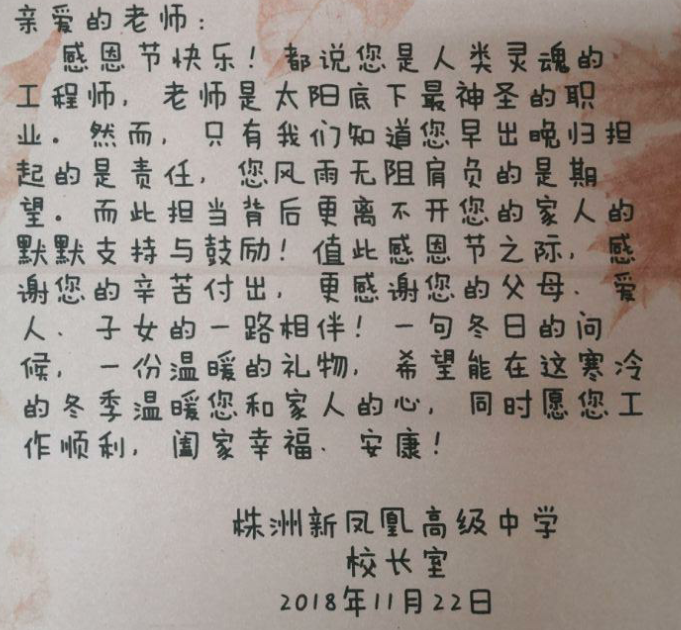 亲爱的老师：
感恩节快乐！都说您是人类灵魂的
工程师，老师是太阳底下最神圣的职
业．然而，只有我们知道您早出晚归担
起的是责任，您风雨无阻肩负的是期
望．而此担当背后更离不开您的家人的
默默支持与鼓励！值此感恩节之际，感
谢您的辛苦付出，更感谢您的父母、爱
人、子女的一路相伴！一句冬日的问
候，一份温暖的礼物，希望能在这寒冷
的冬季温暖您和家人的心，同时愿您工
作顺利，阖家幸福、安康！
株洲新凤凰高级中学
校长室
2018年11月22日